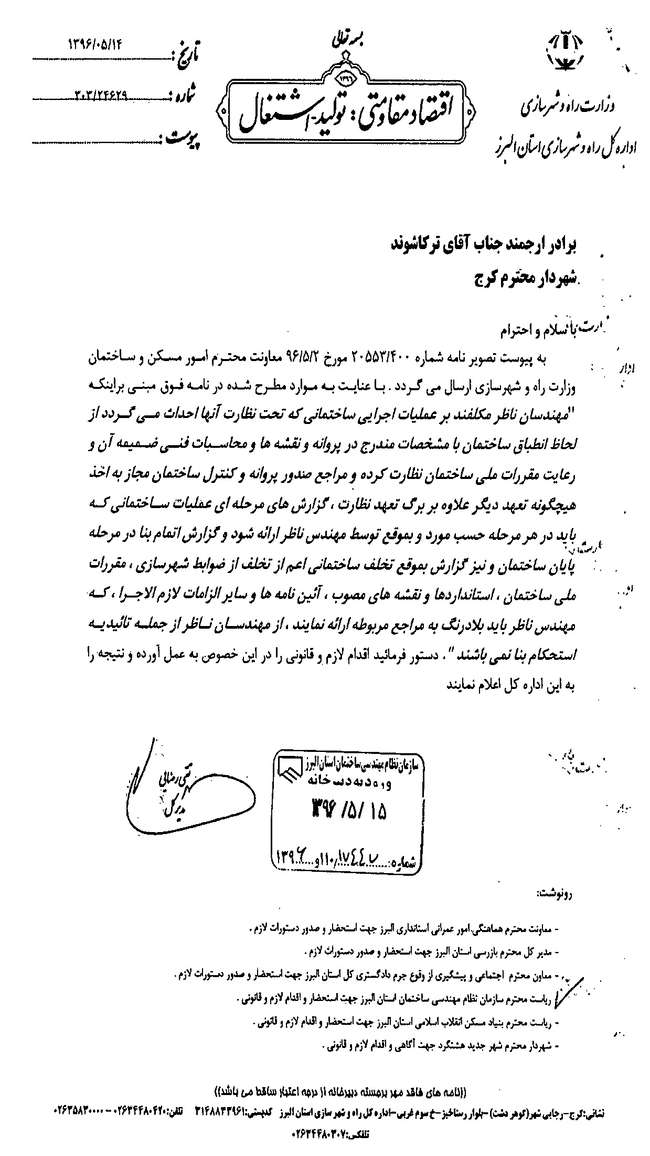 بسمه تعالی
وزارت راه و شهرسازی
اداره کل راه و شهرسازی استان البرز
۱۳۹۶
اقتصاد مقاومتی: تولید-اشتغال
تاریخ: ۱۳۹۶/۰۵/۱۴
شماره: ۲۰۳/۲۴۶۲۹
پیوست:
برادر ارجمند جناب آقای ترکاشوند
شهردار محترم کرج
با سلام و احترام
به پیوست تصویر نامه شماره ۲۰۵۵۳/۴۰۰ مورخ ۹۶/۵/۲ معاونت محترم امور مسکن و ساختمان
وزارت راه و شهرسازی ارسال می گردد . با عنایت به موارد مطرح شده در نامه فوق مبنی براینکه
"مهندسان ناظر مکلفند بر عملیات اجرایی ساختمانی که تحت نظارت آنها احداث می گردد از
لحاظ انطباق ساختمان با مشخصات مندرج در پروانه و نقشه ها و محاسبات فنی ضمیمه آن و
رعایت مقررات ملی ساختمان نظارت کرده و مراجع صدور پروانه و کنترل ساختمان مجاز به اخذ
هیچگونه تعهد دیگر علاوه بر برگ تعهد نظارت ، گزارش های مرحله ای عملیات ساختمانی که
باید در هر مرحله حسب مورد و بموقع توسط مهندس ناظر ارائه شود و گزارش اتمام بنا در مرحله
پایان ساختمان و نیز گزارش بموقع تخلف ساختمانی اعم از تخلف از ضوابط شهرسازی ، مقررات
ملی ساختمان ، استانداردها و نقشه های مصوب ، آئین نامه ها و سایر الزامات لازم الاجرا ، که
مهندس ناظر باید بلادرنگ به مراجع مربوطه ارائه نمایند ، از مهندسان ناظر از جمله تائیدیه
استحکام بنا نمی باشند" . دستور فرمائید اقدام لازم و قانونی را در این خصوص به عمل آورده و نتیجه را
به این اداره کل اعلام نمایند
تقی رضایی
مدیر کل
سازمان نظام مهندسی ساختمان استان البرز
ورود به دبیرخانه
۱۳۹۶/۵/۱۵
شماره: ۱۷۴۴۷/۱۱۰/و/۱۳۹۶
رونوشت:
- معاونت محترم هماهنگی امور عمرانی استانداری البرز جهت استحضار و صدور دستورات لازم .
- مدیر کل محترم بازرسی استان البرز جهت استحضار و صدور دستورات لازم .
- معاون محترم اجتماعی و پیشگیری از وقوع جرم دادگستری کل استان البرز جهت استحضار و صدور دستورات لازم .
- ریاست محترم سازمان نظام مهندسی ساختمان استان البرز جهت استحضار و اقدام لازم و قانونی .
- ریاست محترم بنیاد مسکن انقلاب اسلامی استان البرز جهت استحضار و اقدام لازم و قانونی .
- شهردار محترم شهر جدید هشتگرد جهت آگاهی و اقدام لازم و قانونی .
((نامه های فاقد مهر برجسته دبیرخانه از درجه اعتبار ساقط می باشد))
نشانی:کرج-رجایی شهر(گوهر دشت)-بلوار رستاخیز-خ سوم غربی-اداره کل راه و شهر سازی استان البرز کدپستی:۳۱۴۸۸۳۳۹۶۱ تلفن:۰۲۶۳۴۴۸۰۴۲۰ - ۰۲۶۳۵۸۳۰۰۰۰
تلفکس:۰۲۶۳۴۴۸۰۳۰۷